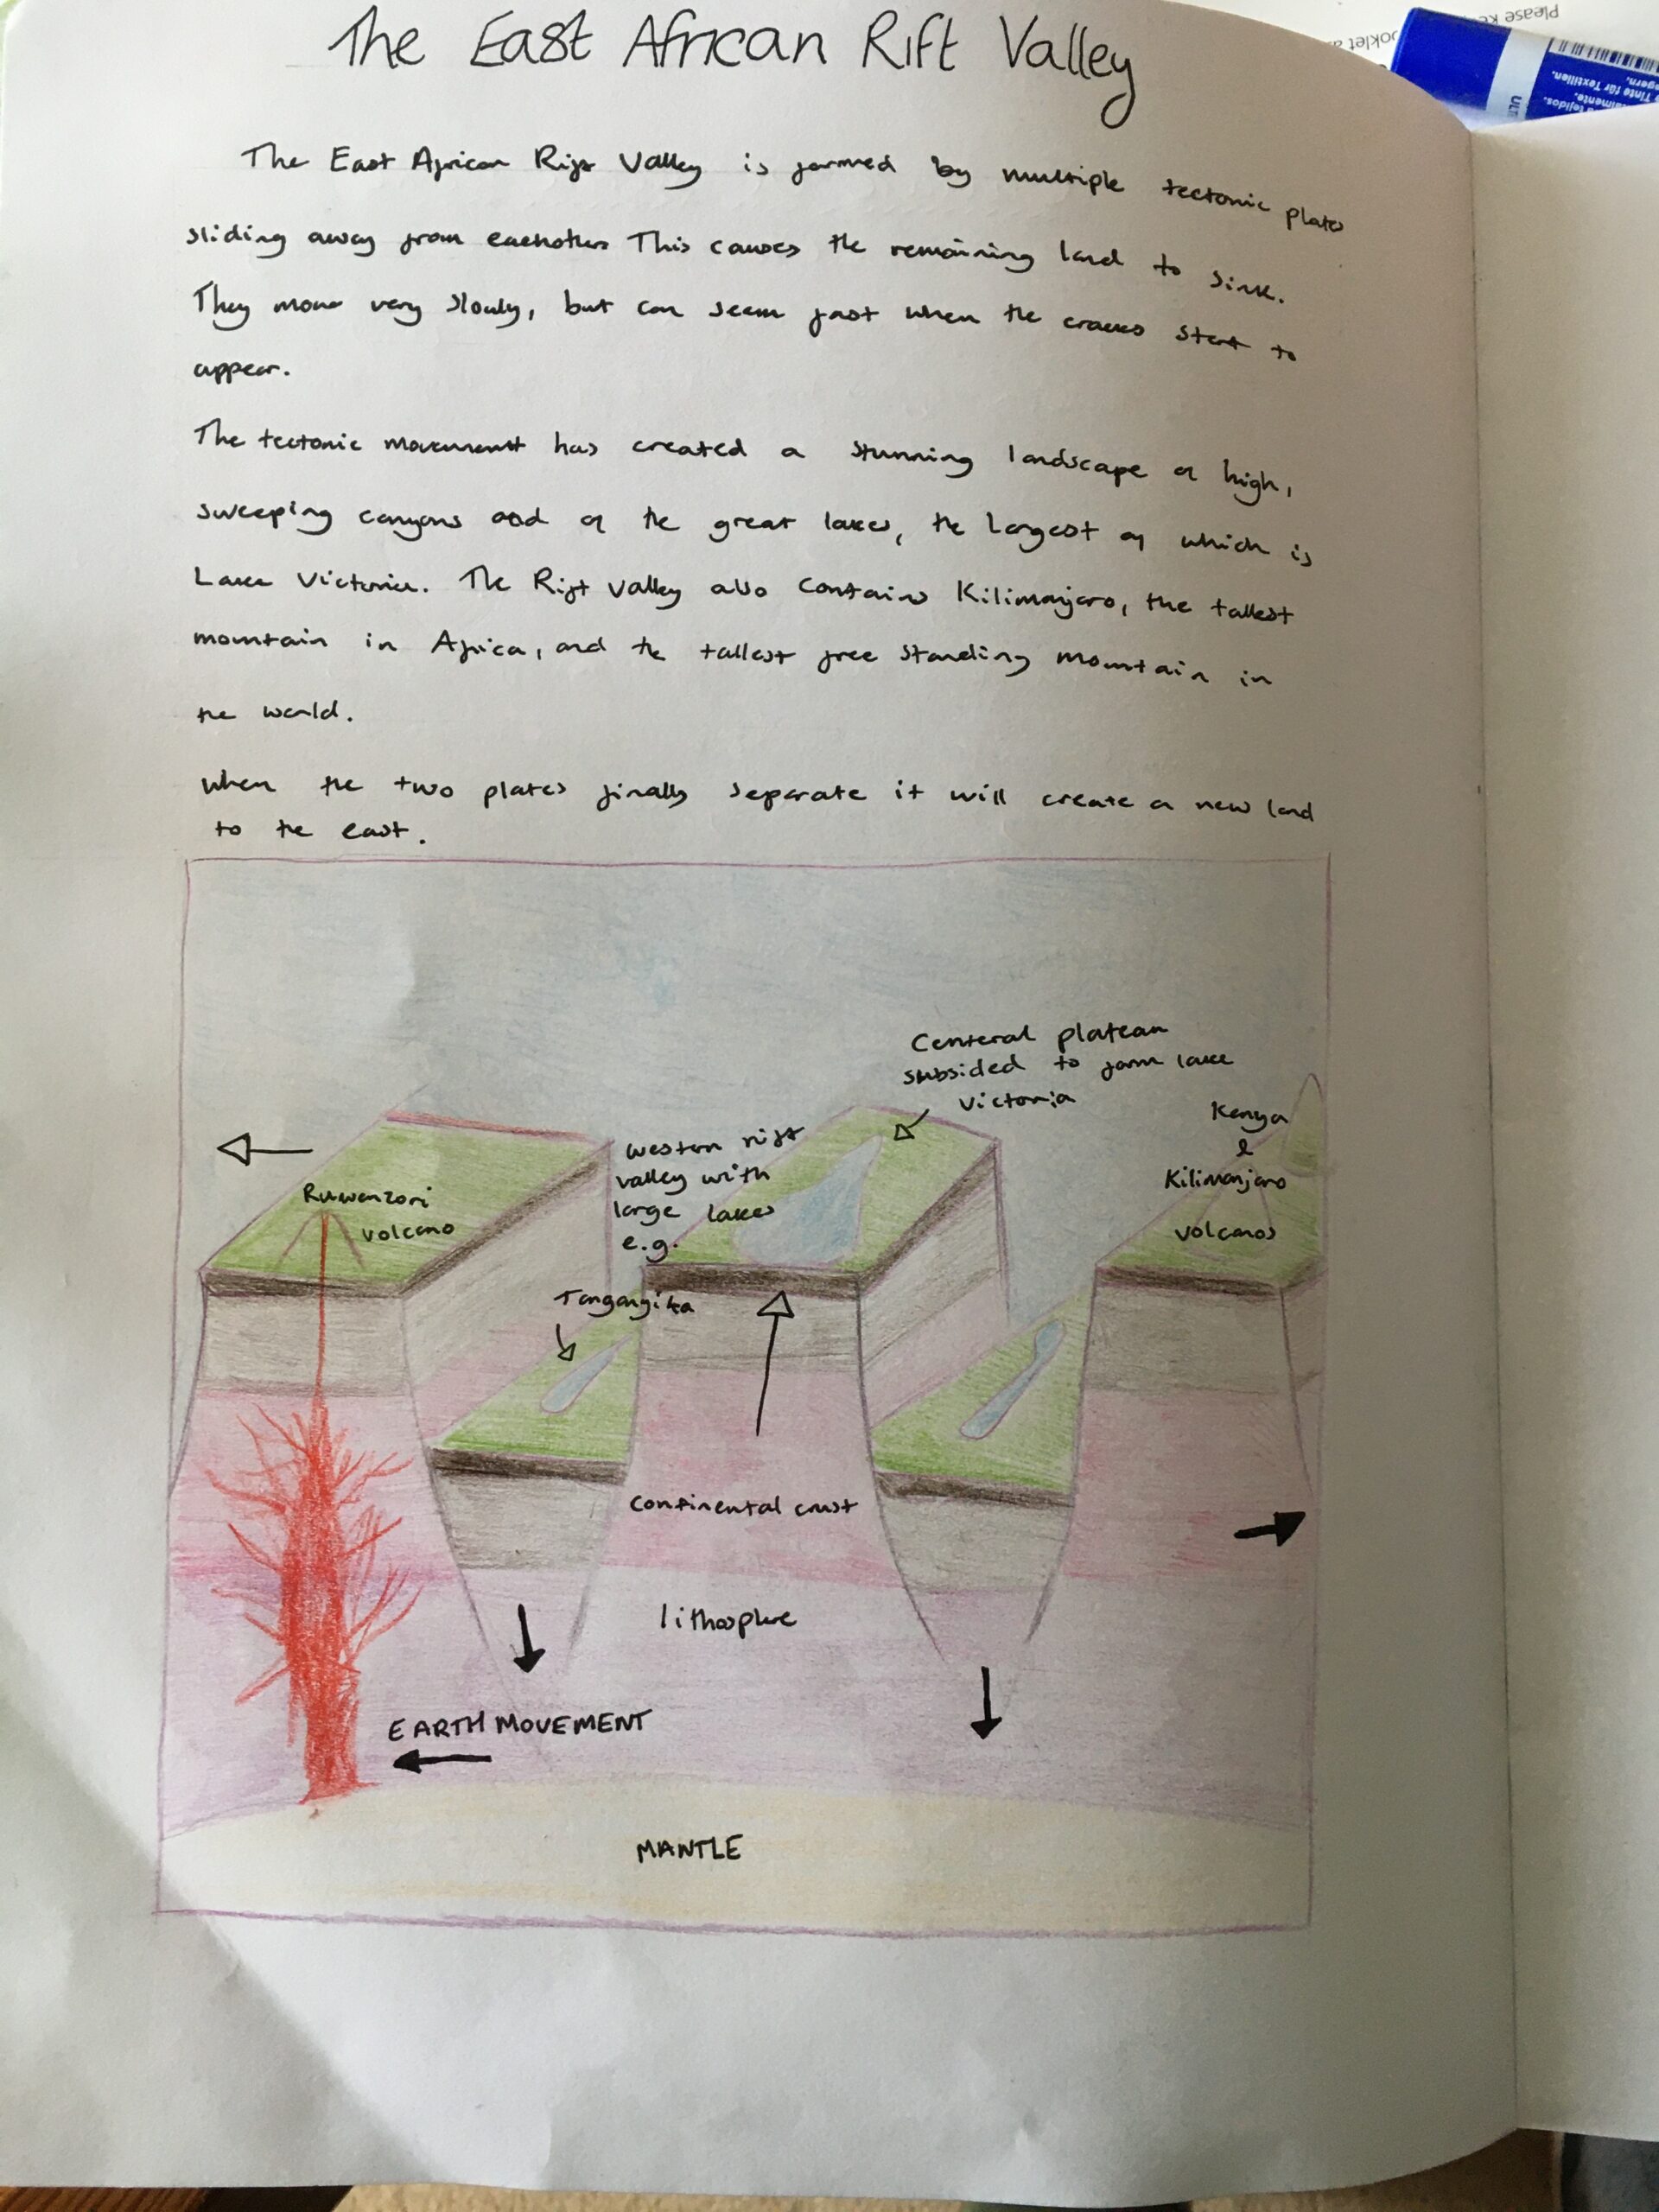 The East African Rift Valley
The East African Rift Valley is formed by multiple tectonic plates
sliding away from eachother This causes the remaining land to sink.
They move very slowly, but can seem fast when the cracks start to
appear.
The tectonic movement has created a stunning landscape of high,
sweeping canyons and of the great lakes, the largest of which is
Lake Victoria. The Rift Valley also contains Kilimanjaro, the tallest
mountain in Africa, and the tallest free standing mountain in
the world.
When the two plates finally separate it will create a new land
to the east.
Centeral plateau
subsided to form lake
Victoria
Kenya
&
Kilimanjaro
volcanos
Western rift
valley with
large lakes
e.g.
Tanganyika
Ruwenzori
volcano
Continental crust
lithosphere
EARTH MOVEMENT
MANTLE
Please
ooklet
Tinte für Textilien.
tejidos.